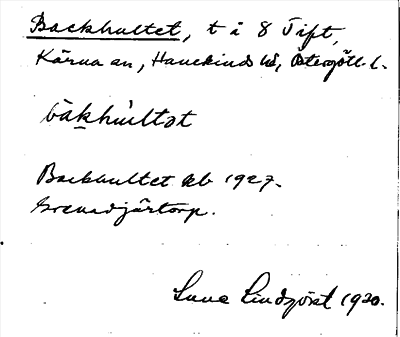 Backhultet, t å 8 Tift,
Kärna sn, Hanekinds hd, Östergötl. l.
bàkhúltət
Backhultet kb 1927.
Grenadjärtorp.
Sune Lindqvist 1920.